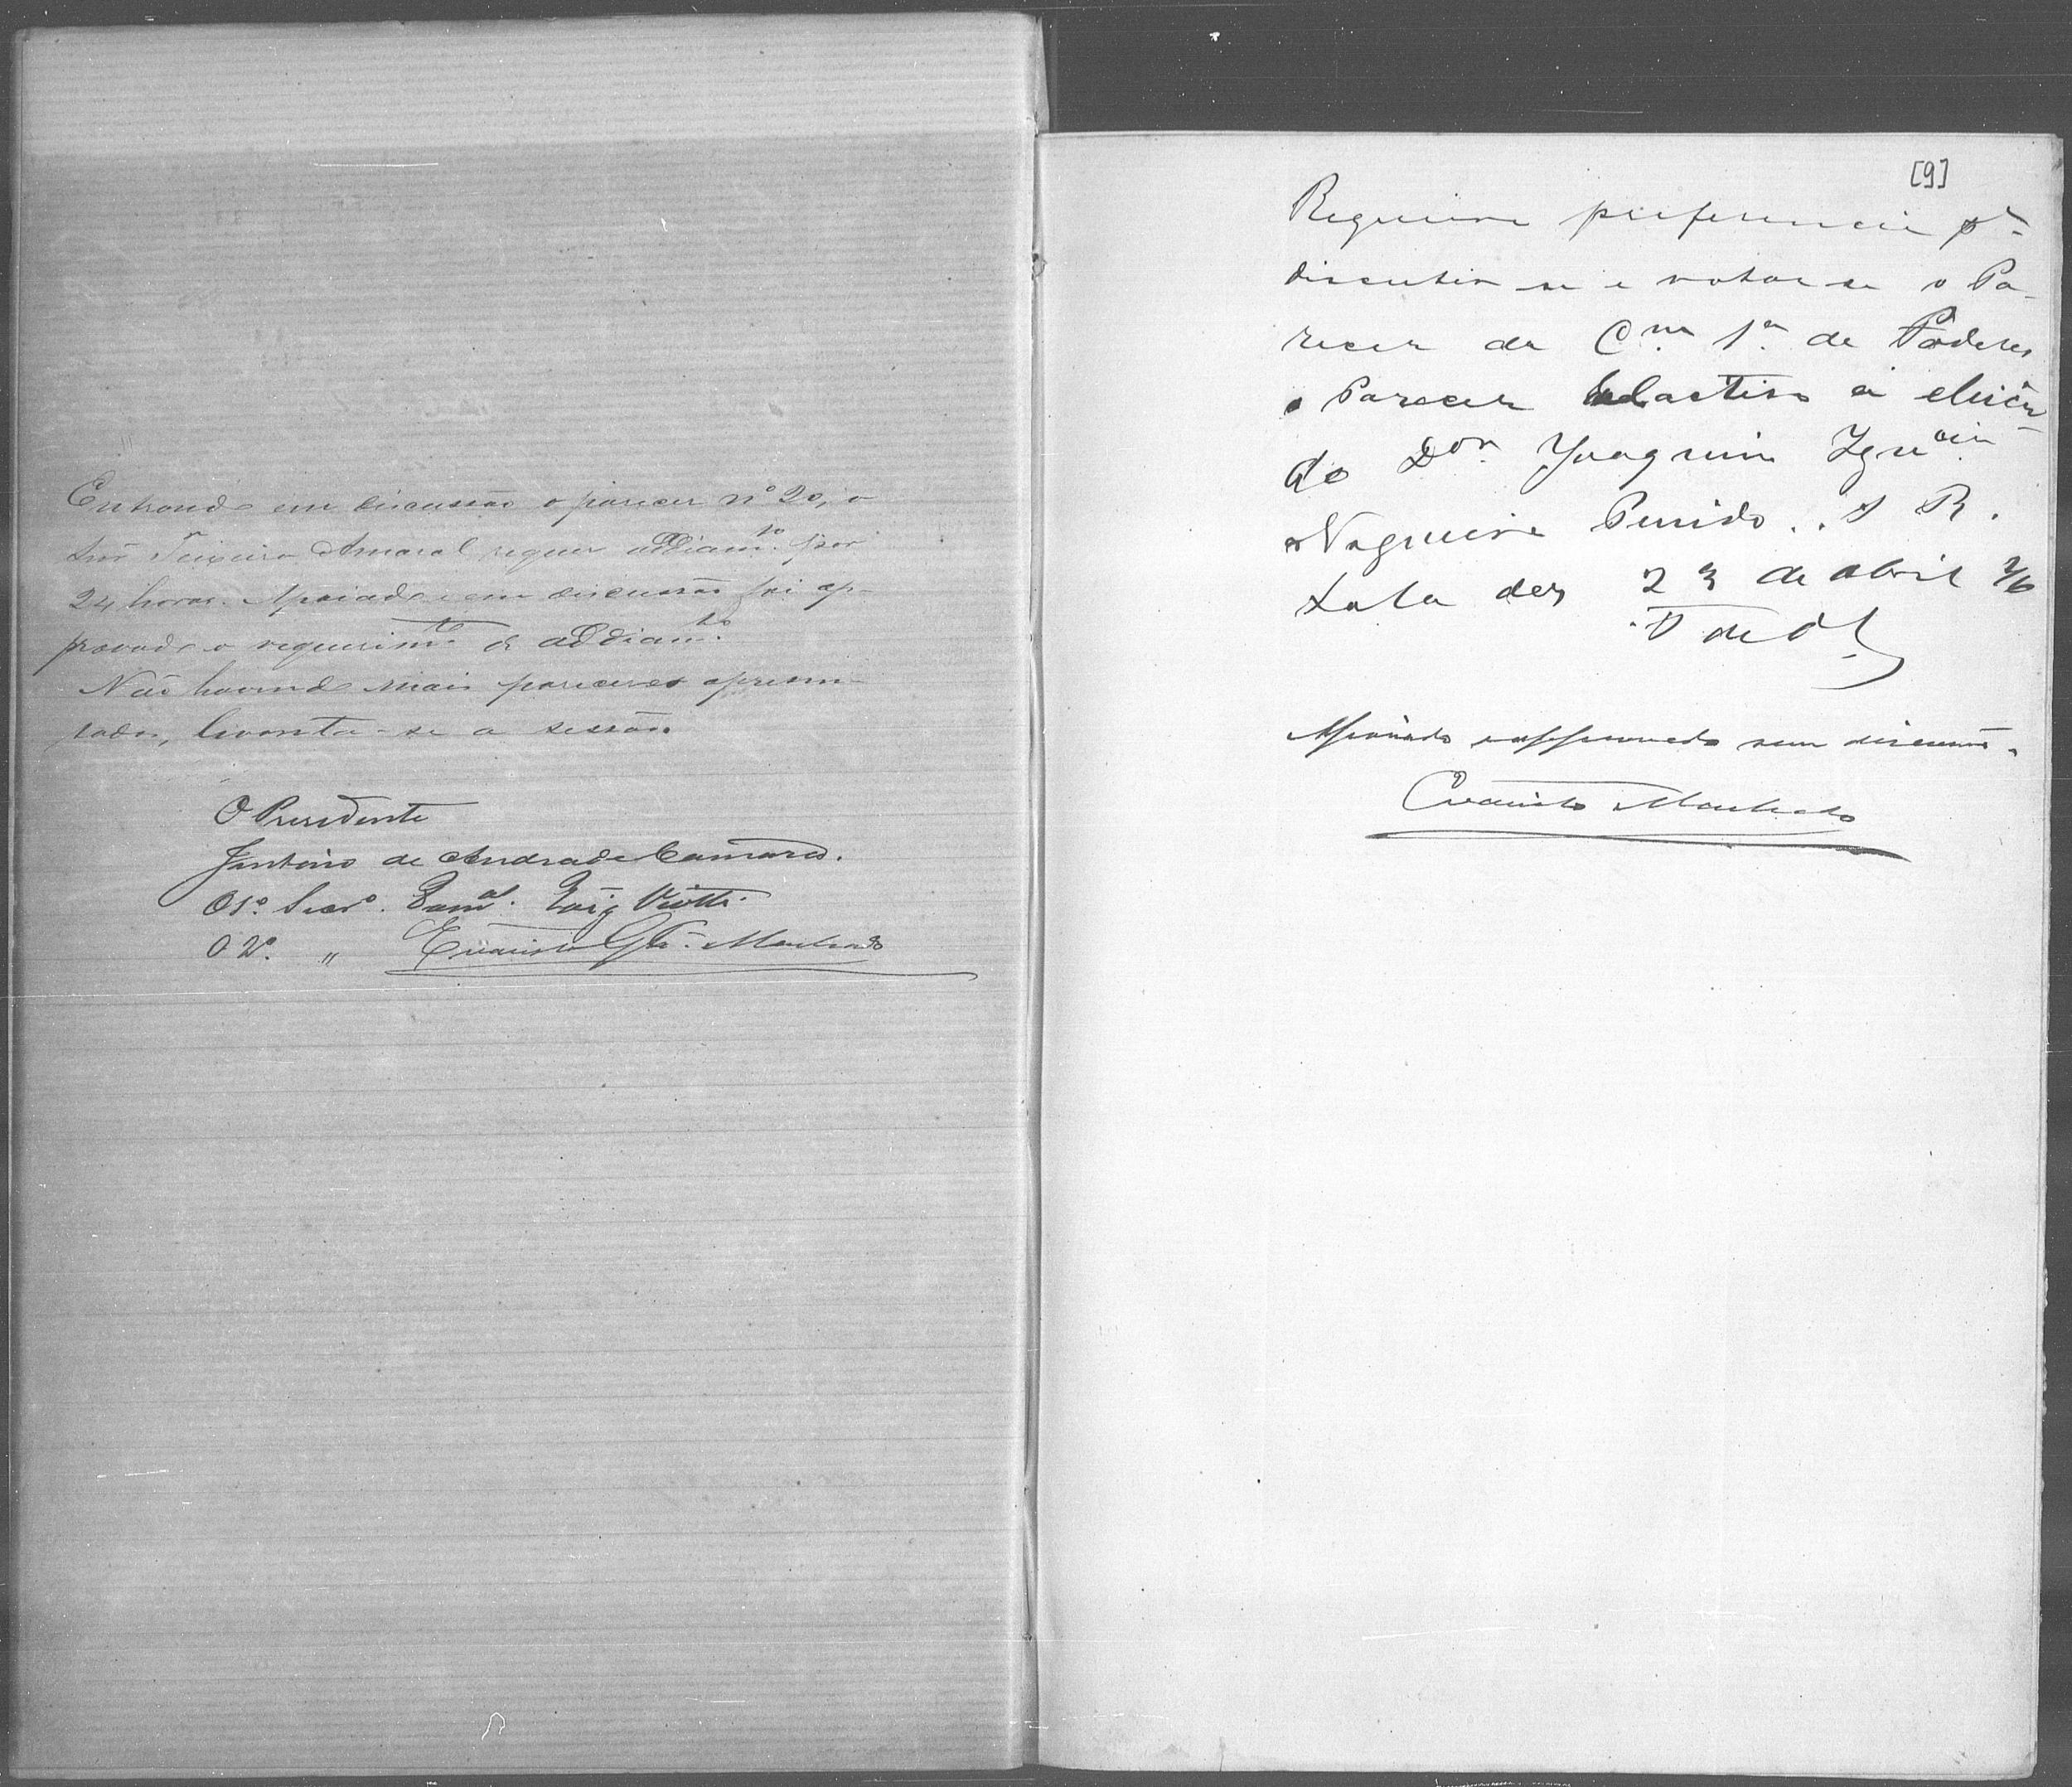 Entrando em discussão o parecer nº 20, o
Snr Teixeira Amaral requer addiamto. por
24 horas. Apoiado e em discussão foi ap-
provado o requerimto de addiamto.
Não havendo mais pareceres apresen-
tados, levanta-se a sessão.
O Presidente
Antonio de Andrade Camara.
O 1º. Secrº. Viotti.
O 2º. " Evaristo Machado
[9]
Requeiro preferencia pª
discutir-se e votar-se o Pa-
recer da Cm. 1ª. de Poderes
o Parecer relactivo á eleição
do Dor. Joaquim Ignacio
Nogueira Penido. S R.
Sala das 23 de Abril 76
Apoiado e approvado sem discussão.
Evaristo Machado